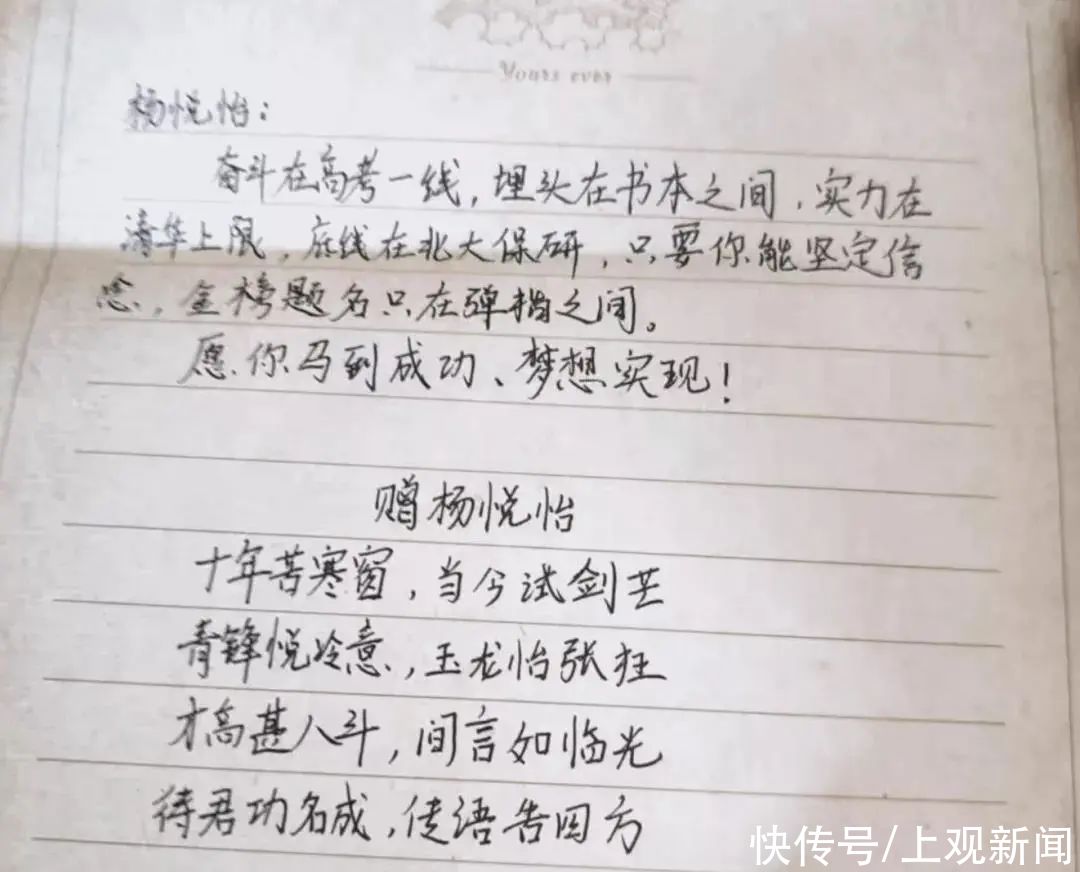 Yours ever
杨悦怡：
奋斗在高考一线，埋头在书本之间，实力在
清华上限，底线在北大保研，只要你能坚定信
念，金榜题名只在弹指之间。
愿你马到成功、梦想实现！
赠杨悦怡
十年苦寒窗，当今试剑芒
青锋悦冷意，玉龙怡张狂
才高甚八斗，间言如临光
待君功名成，传语告四方
快传号/上观新闻